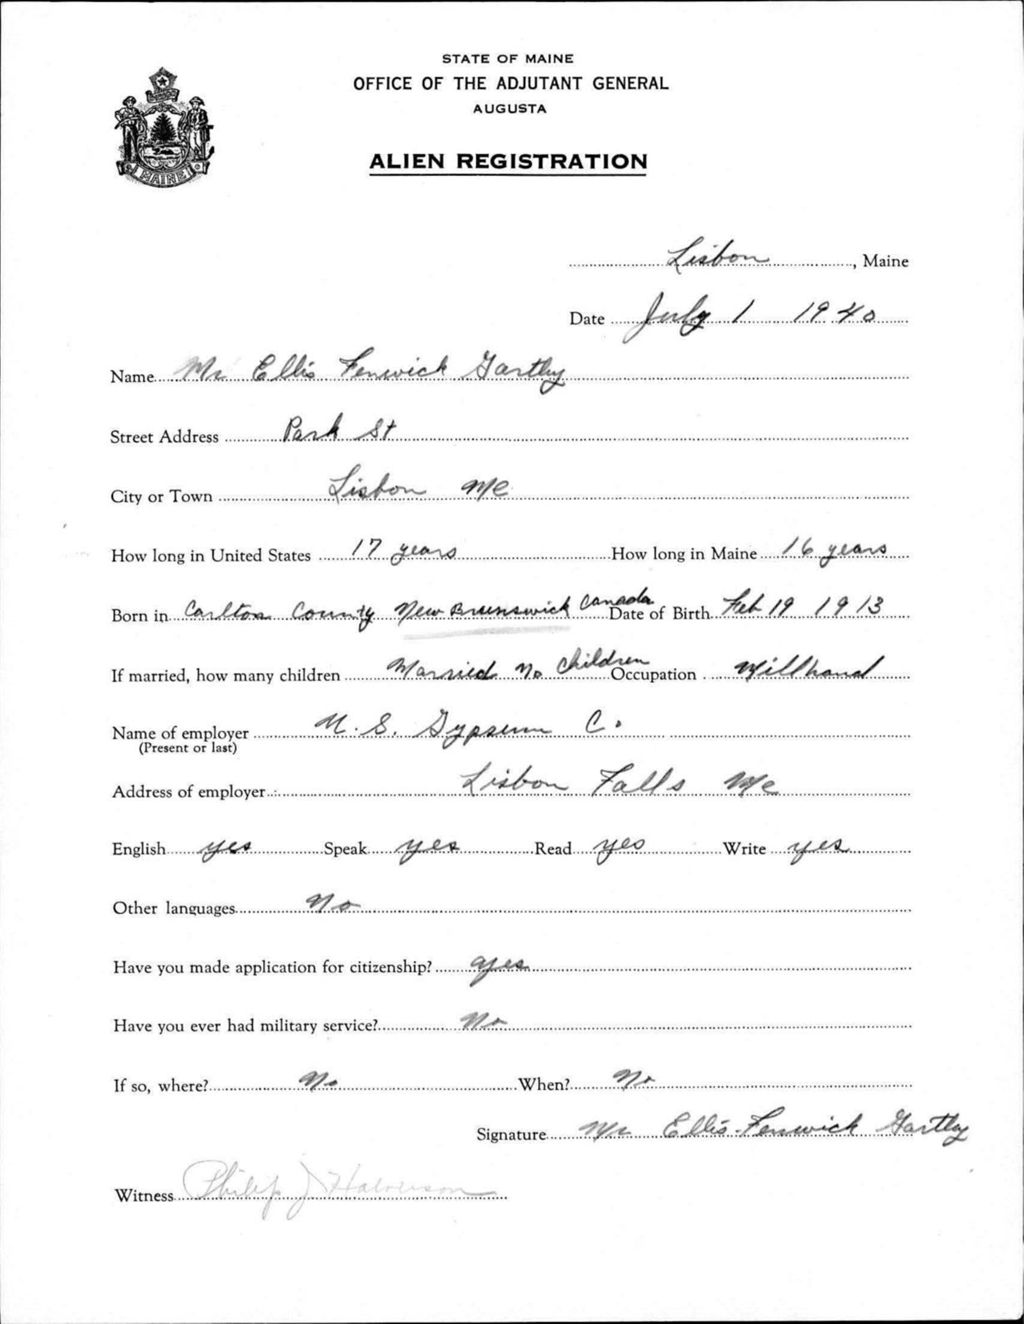 STATE OF MAINE
OFFICE OF THE ADJUTANT GENERAL
AUGUSTA
ALIEN REGISTRATION
MAINE
Lisbon, Maine
Date July 1 1940
Name Mr Ellis Fenwick Gartley
Street Address Park St
City or Town Lisbon Me
How long in United States 17 years How long in Maine 16 years
Born in Carlton County New Brunswick Canada Date of Birth Feb 19 1913
If married, how many children Married No Children Occupation Millhand
Name of employer U.S. Gypsum Co.
(Present or last)
Address of employer Lisbon Falls Me
English yes Speak yes Read yes Write yes
Other languages No
Have you made application for citizenship? yes
Have you ever had military service? No
If so, where? No When? No
Signature Mr Ellis Fenwick Gartley
Witness Philip J Halverson